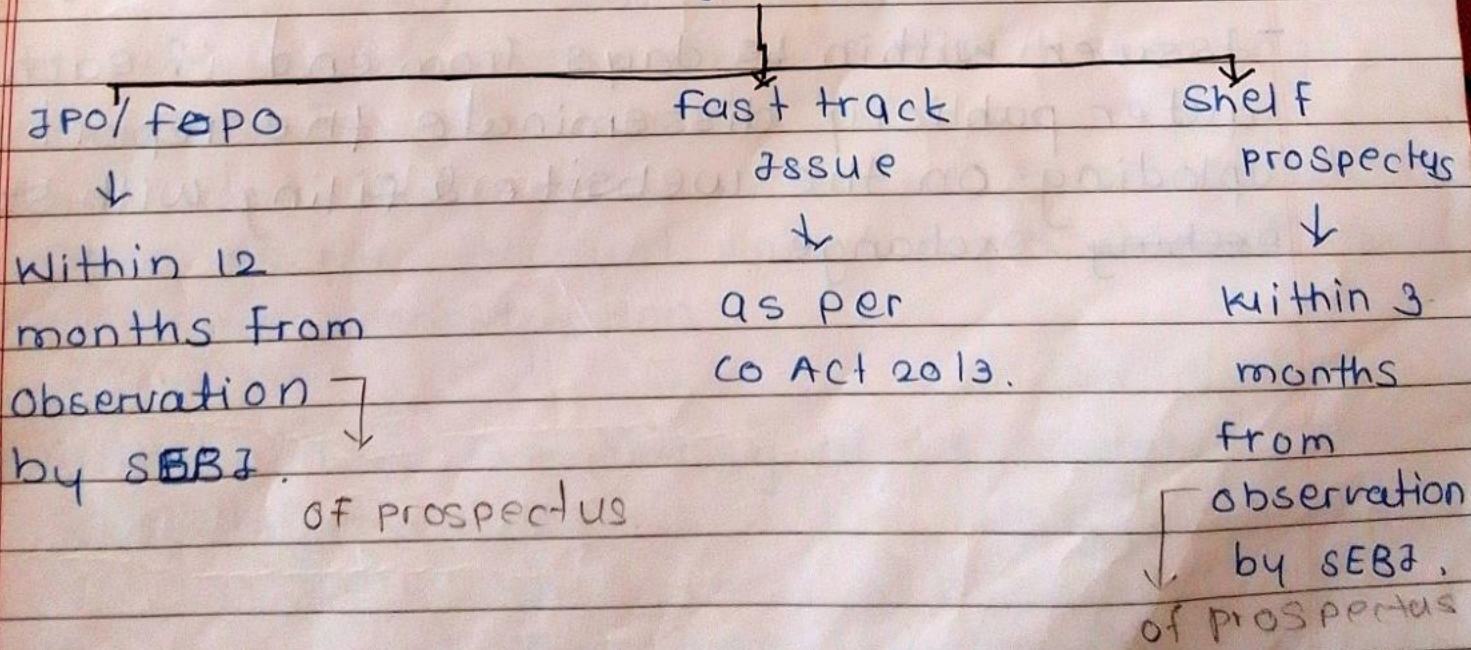 IPO/ FOPO
↓
Within 12
months from
observation
by SEBI.
of prospectus
fast track
Issue
↓
as per
CO ACt 2013.
Shelf
prospectus
↓
Within 3
months
from
observation
by SEBI.
of prospectus